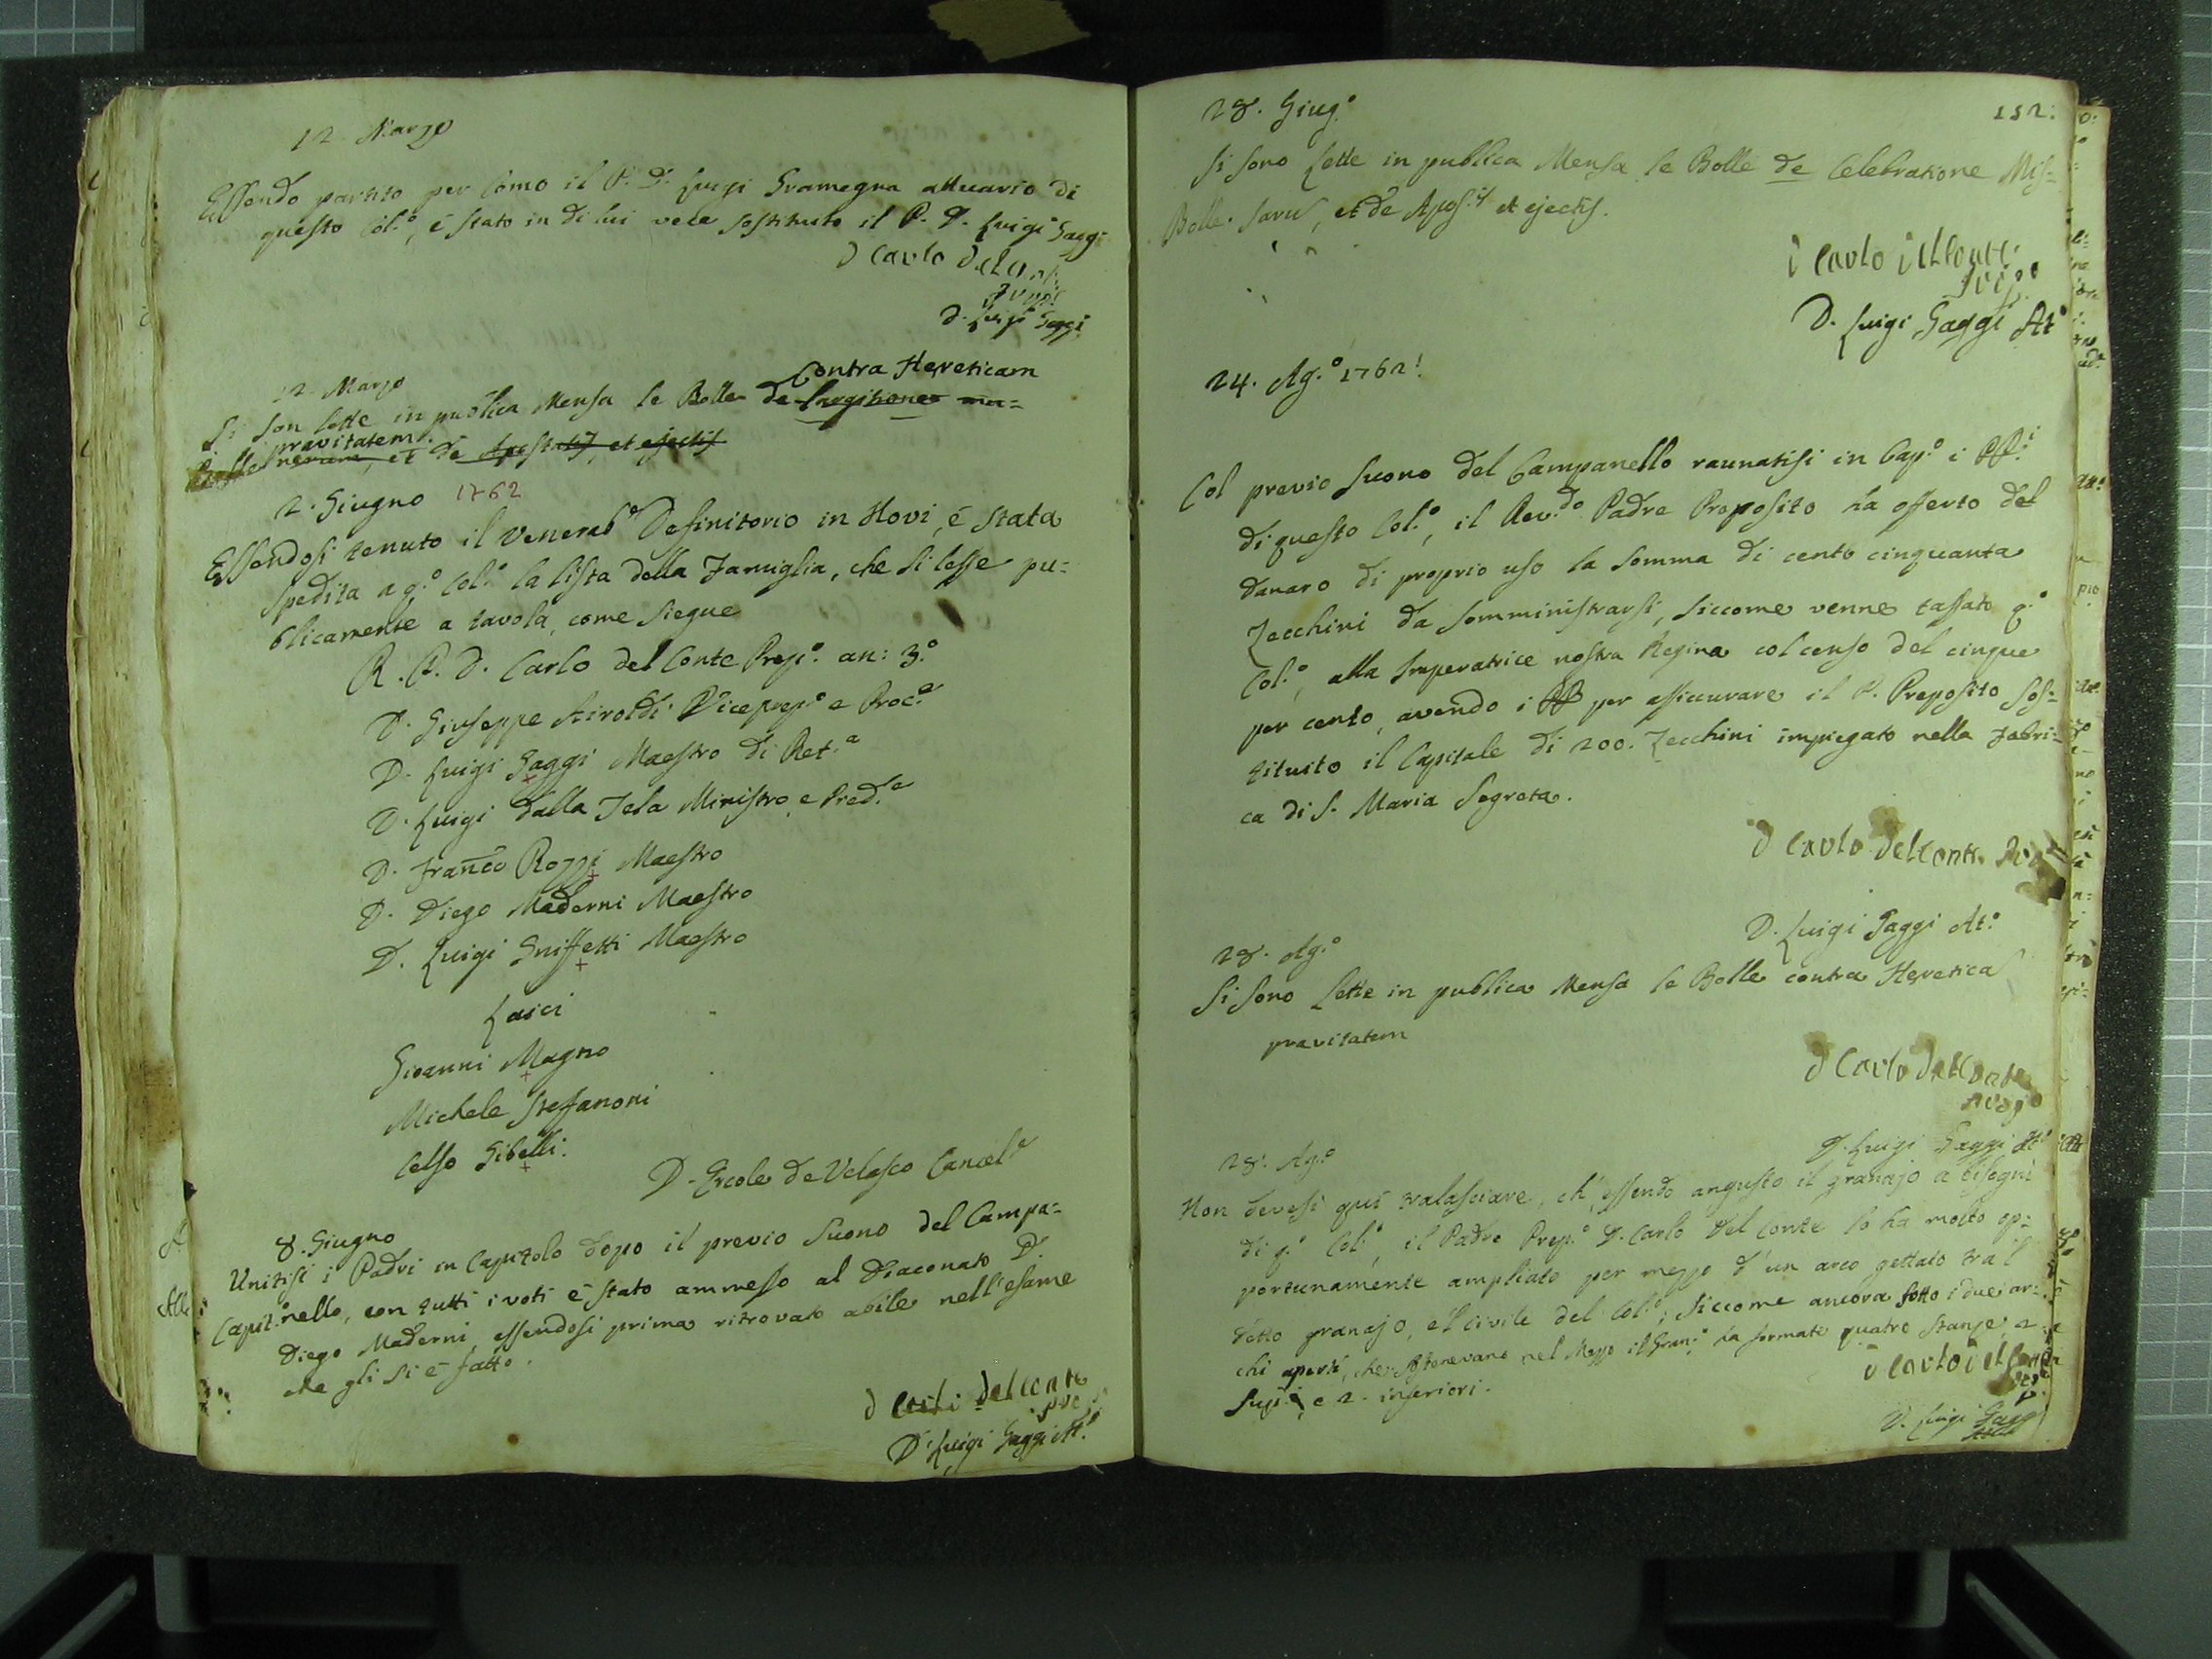 12. Marzo
Essendo partito per Como il P. D. Luigi Gramegna attuario di
questo Col.º, è stato in di lui vece sostituito il P. D. Luigi Gaggi
D Carlo Del Con
D. Luigi Gaggi
12. Marzo
Contra Hereticam
Si son lette in publica Mensa le Bolle de largitione mu=
pravitatem.
Bolle nerum, et de Apostatis, et ejectis
2. Giugno 1762
Essendosi tenuto il Venerab.e Definitorio in Novi, è stata
spedita a q.º Col.º la lista della Famiglia, che si lesse pu=
blicamente a tavola, come siegue
R. P. D. Carlo del Conte Prep.º an: 3.º
D. Giuseppe Airoldi Viceprep.º e Proc.e
D. Luigi Gaggi Maestro di Ret.a
D. Luigi dalla Tela Ministro, e Pred.e
D. Franco Rozzi Maestro
D. Diego Maderni Maestro
D. Luigi Griffetti Maestro
Laici
Giovanni Magno
Michele Steffanoni
Celso Gibelli.
D. Ercole de Velasco Cancel.e
8. Giugno
Unitisi i Padri in Capitolo dopo il previo suono del Campa=
Capit. nello, con tutti i voti è stato ammesso al Diaconato D.
Diego Maderni essendosi prima ritrovato abile nell'esame
che gli si è fatto.
D Carlo Del Conte
D. Luigi Gaggi At.º
152.
28. Giug.º
Si sono lette in publica Mensa le Bolle de Celebratione Mis=
Bolle. sarum, et de Apos.is et ejectis.
D Carlo Del Conte
D. Luigi Gaggi At.º
24. Ag.º 1762.
Col previo suono del Campanello raunatisi in Cap.º i PP.i
di questo Col.º, il Rev.do Padre Preposito ha offerto del
danaro di proprio uso la somma di cento cinquanta
Zecchini da somministrarsi, siccome venne tassato q.º
Col.º, alla Imperatrice nostra Regina col censo del cinque
per cento, avendo i PP per assicurare il P. Preposito sos=
tituito il Capitale di 200. Zecchini impiegato nella Fabri=
ca di S. Maria Segreta.
D Carlo Del Conte
D. Luigi Gaggi At.º
28. Ag.º
Si sono lette in publica Mensa le Bolle contra Heretica
pravitatem
D Carlo Del Conte
D. Luigi Gaggi At.º
28. Ag.º
Non devesi qui tralasciare, ch'essendo angusto il granajo a bisogni
di q.º Col.º, il Padre Prep.º D. Carlo Del Conte lo ha molto op=
portunamente ampliato per mezzo d'un arco gettato tra 'l
detto granajo, e 'l civile del Col.º; siccome ancora sotto i due ar=
chi aperti, che sostenevano nel Mezzo il Gran.º ha formate quatro stanze, 2.
Sup.i, e 2. inferiori.
D Carlo Del Conte
D. Luigi Gaggi